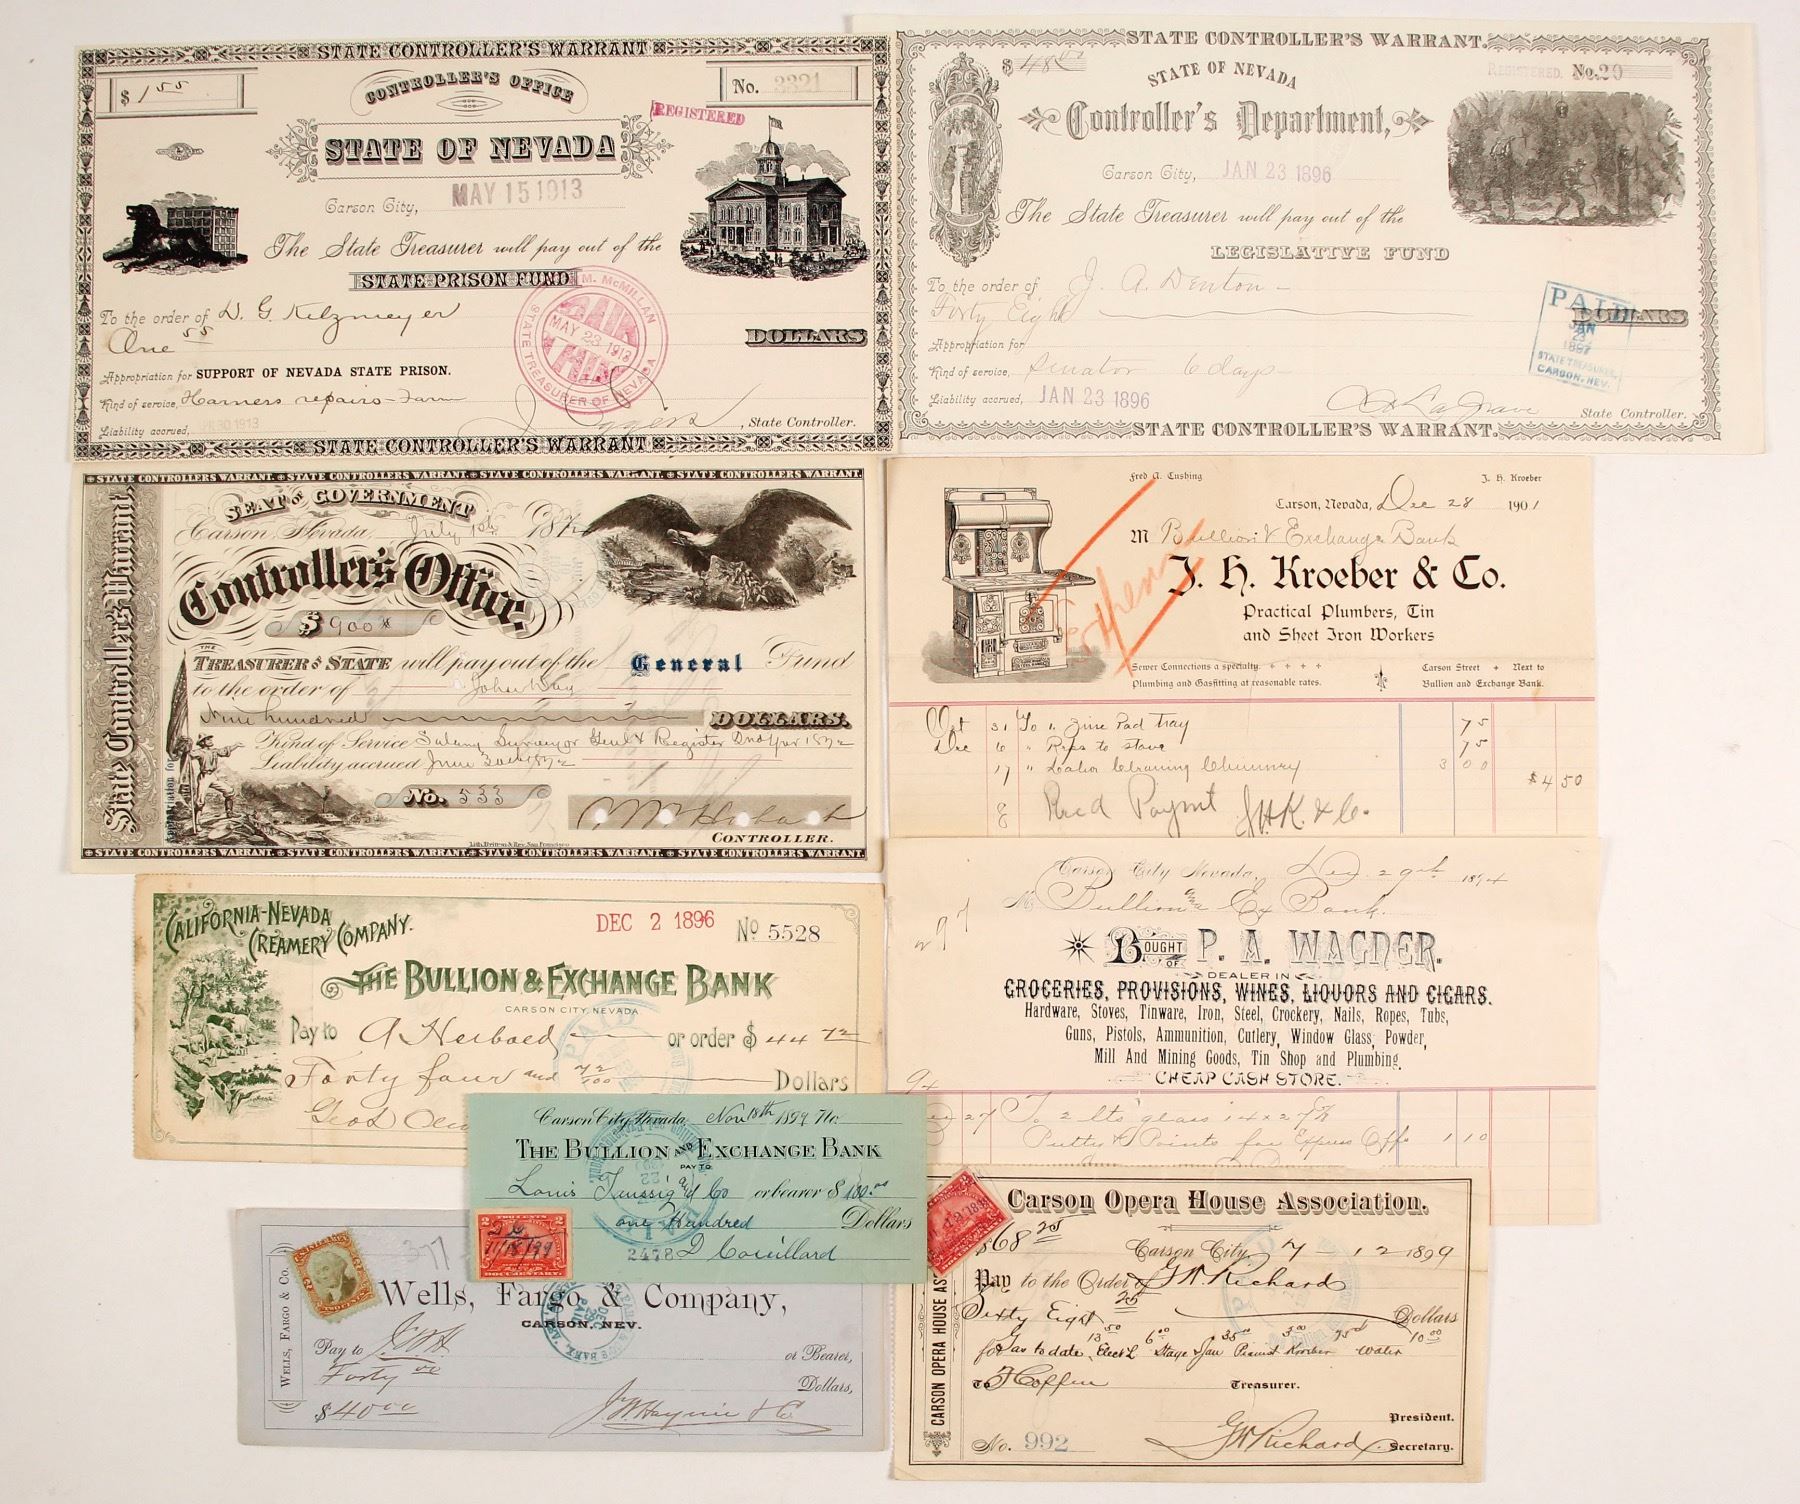 STATE CONTROLLER'S WARRANT
$ 1 55
CONTROLLER'S OFFICE
No. 3321
REGISTERED
STATE OF NEVADA
Carson City, MAY 15 1913
The State Treasurer will pay out of the
STATE PRISON FUND
To the order of D. G. Kitzmeyer
One 55
DOLLARS
Appropriation for SUPPORT OF NEVADA STATE PRISON.
Kind of service, Harness repairs - Farm
Liability accrued, 30 1913
, State Controller.
M. McMILLAN
PAID
MAY 23 1913
STATE TREASURER OF NEVADA
STATE CONTROLLER'S WARRANT
STATE CONTROLLER'S WARRANT.
$ 48
STATE OF NEVADA
REGISTERED. No. 20
Controller's Department,
Carson City, JAN 23 1896
The State Treasurer will pay out of the
LEGISLATIVE FUND
To the order of J. A. Denton
Forty Eight
DOLLARS
Appropriation for
Kind of service, Senator 6 days
Liability accrued, JAN 23 1896
C A LaGrave State Controller.
PAID
JAN
23
1897
STATE TREASURER,
CARSON, NEV.
STATE CONTROLLER'S WARRANT.
STATE CONTROLLERS WARRANT. STATE CONTROLLERS WARRANT. STATE CONTROLLERS WARRANT. STATE CONTROLLERS WARRANT.
State Controller's Warrant.
SEAT OF GOVERNMENT
Carson, Nevada, July 1st 1872
Controller's Office,
$ 900
THE TREASURER OF STATE will pay out of the General Fund
to the order of John Day
Nine hundred DOLLARS.
Kind of Service Salary Surveyor Genl & Register
Liability accrued June 30th 1872
Appropriation for
No. 533
CONTROLLER.
Lith. Britton & Rey, San Francisco
STATE CONTROLLERS WARRANT. STATE CONTROLLERS WARRANT. STATE CONTROLLERS WARRANT. STATE CONTROLLERS WARRANT.
Fred A. Cushing
J. H. Kroeber
Carson, Nevada, Dec 28 1901
M Bullion & Exchange Bank
J. H. Kroeber & Co.
Practical Plumbers, Tin
and Sheet Iron Workers
Sewer Connections a specialty.
Plumbing and Gasfitting at reasonable rates.
Carson Street + Next to
Bullion and Exchange Bank.
Oct 31 To 1 Zinc Pad Tray 75
Dec 6 " Reps to stove 75
17 " Labor Cleaning Chimney 3 00
$4 50
Recd Paymt J.H.K. & Co.
CALIFORNIA-NEVADA
CREAMERY COMPANY.
DEC 2 1896
No 5528
THE BULLION & EXCHANGE BANK
CARSON CITY, NEVADA
Pay to or order $ 44 72
Forty four and 72/100 Dollars
PAID
Carson City Nevada, Dec. 29th 1894
M Bullion and Ex Bank.
BOUGHT OF P. A. WAGNER.
DEALER IN
GROCERIES, PROVISIONS, WINES, LIQUORS AND CIGARS.
Hardware, Stoves, Tinware, Iron, Steel, Crockery, Nails, Ropes, Tubs,
Guns, Pistols, Ammunition, Cutlery, Window Glass, Powder,
Mill And Mining Goods, Tin Shop and Plumbing.
CHEAP CASH STORE.
94
27 To 2 Lts glass 14 x 2
Putty & Points for Express Offs 1 10
Carson City, Nevada, Nov 18th 1899 No.
THE BULLION AND EXCHANGE BANK
PAY TO
Louis Taussig and Co or bearer $ 100.00
One Hundred Dollars
2478 D Couillard
TWO CENTS
11/18/99
DOCUMENTARY.
WELLS, FARGO & CO.
377
Wells, Fargo & Company,
CARSON, NEV.
Pay to or Bearer,
Forty Dollars,
$40 00
DEC
29
PAID
Carson Opera House Association.
CARSON OPERA HOUSE AS
$68 25
Carson City, 7 - 12 1899
Pay to the Order of G W Richard
Sixty Eight 25 Dollars
for Gas to date, Elect L 13 50 Stage & Jan 6 00 Pianist 35 00 Kroeber 3 00 water 10 00
To Coffin Treasurer.
President.
No. 992
G W Richard. Secretary.